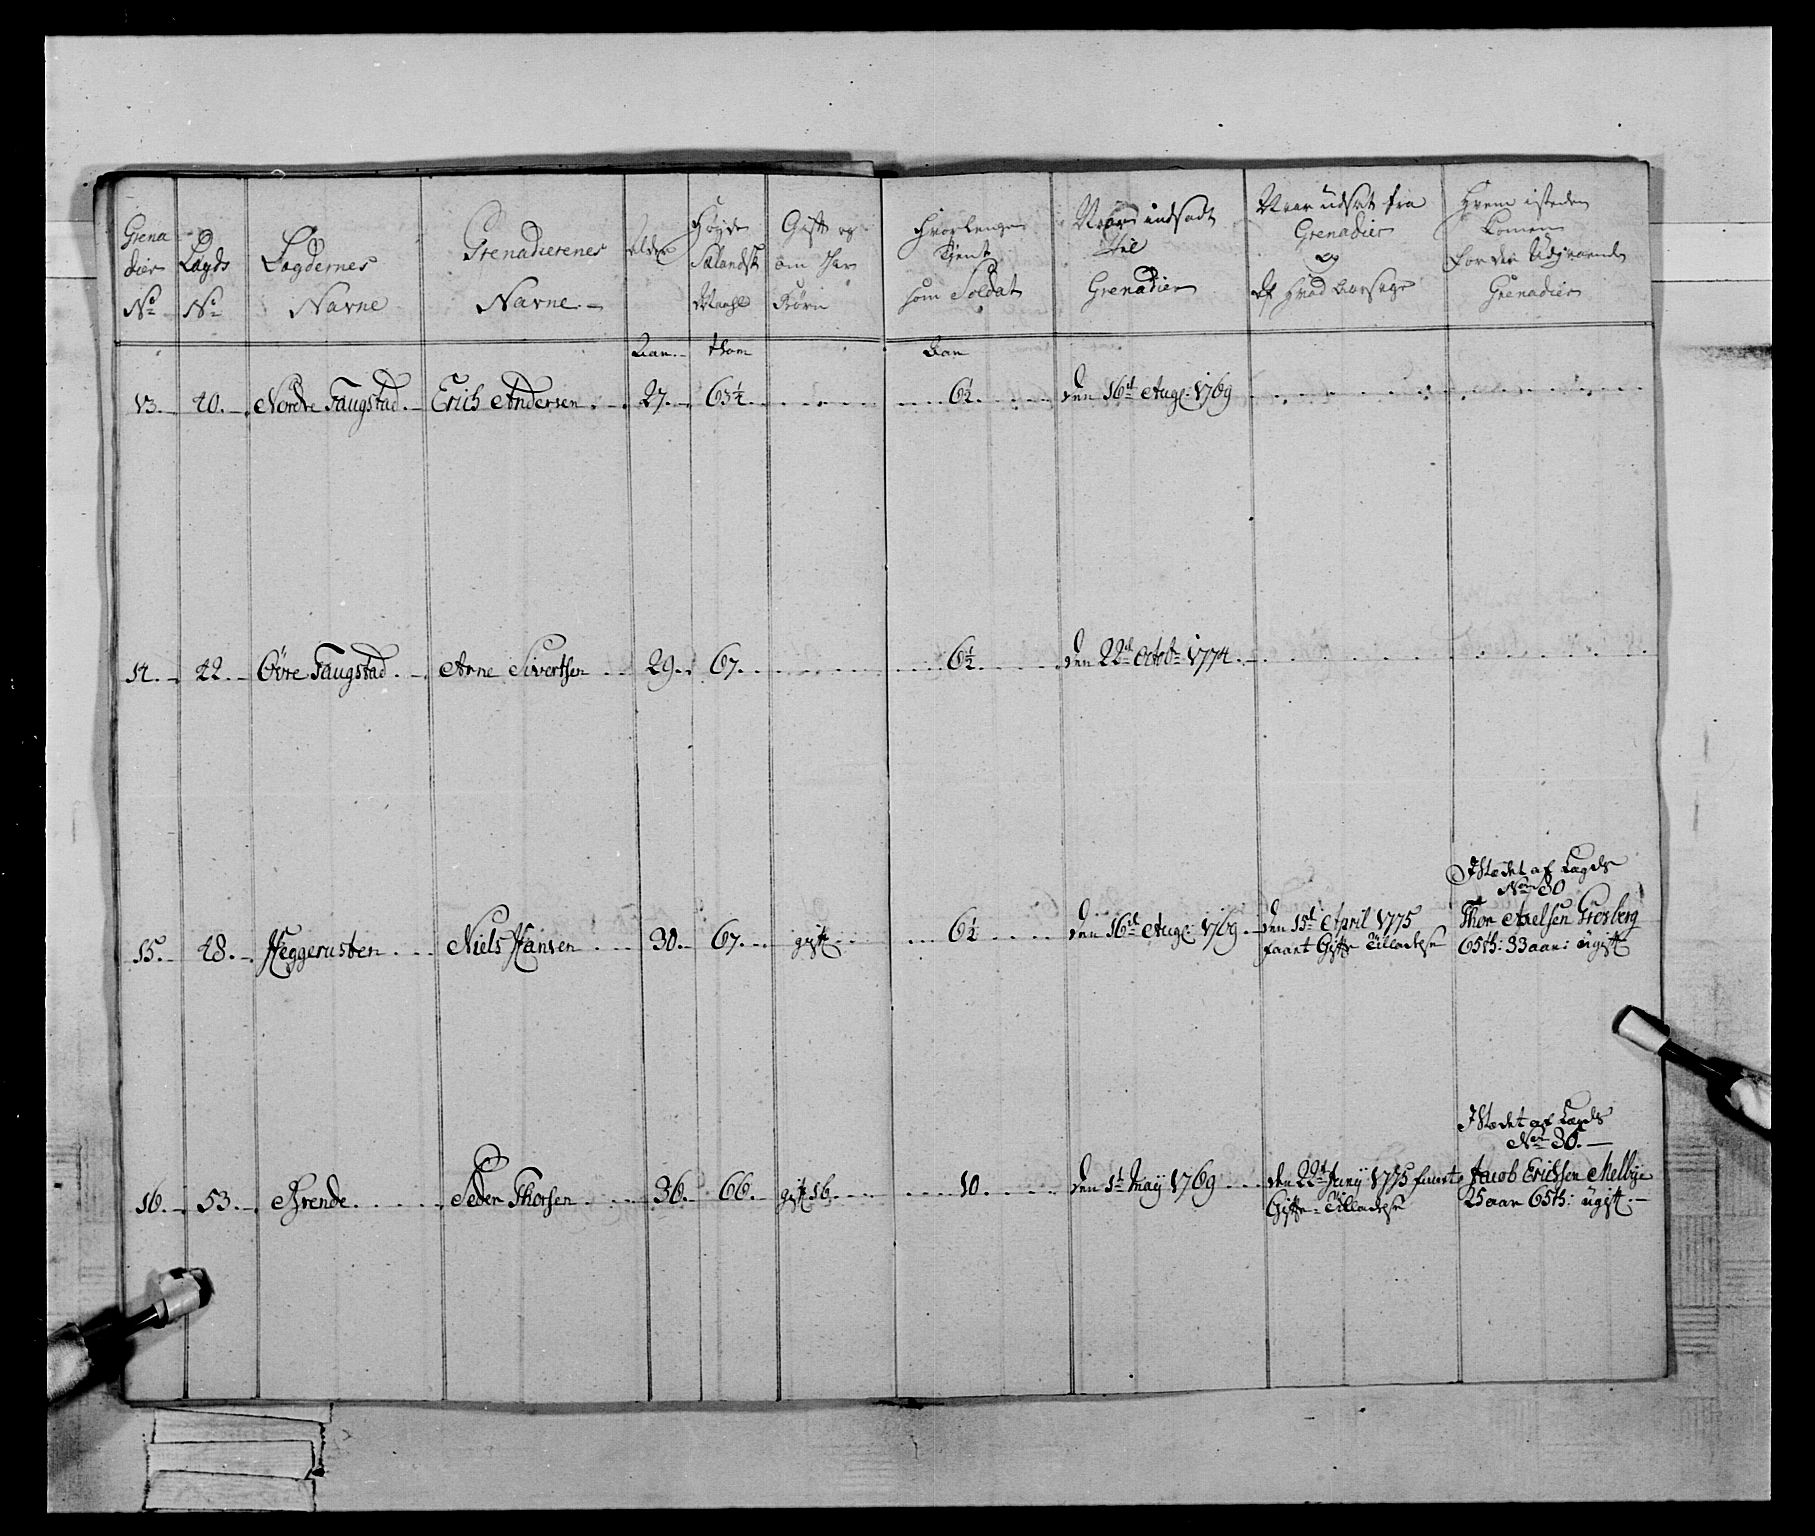 Grena
dier
No
Lægds
No
Lægdernes
Navne
Grenadierenes
Navne.
Alder
Høyde
Sælandsk
Maahl
Gift og
om har
Børn
Hvorlænge
tient
som Soldat
Naar indsadt
til
Grenadier
Naar udsat fra
Grenadier
og
af hvad aarsage
Hvem isteden
komen
for den Udgaaende
Grenadier
Aar. tom
Aar
13. 40. Nordre Faugstad. Erich Andersen. 27. 63¼ 6½ den 16de Aug: 1769
14. 42. Øvre Faugstad. Arne Sivertsen 29. 67. 6½ den 22de Octobr 1774.
15. 48. Heggerusten. Niels Hansen 30. 67. gift. 6½ den 16de Aug: 1769. den 15de April 1775
faaet Gifte Tilladelse
I Stædet af Lægds
No 30
Thor Axelsen Grosberg
65th: 33 aar: ugift
16. 53. Brende. Peder Thorsen 36. 66. gift 1 b. 10. den 1te May 1769 den 22de Juny 1775 faaet
Gifte-Tilladelse
I Stædet af Lægds
No 36.
Jacob Erichsen Melbye
25 aar 65th: ugift.